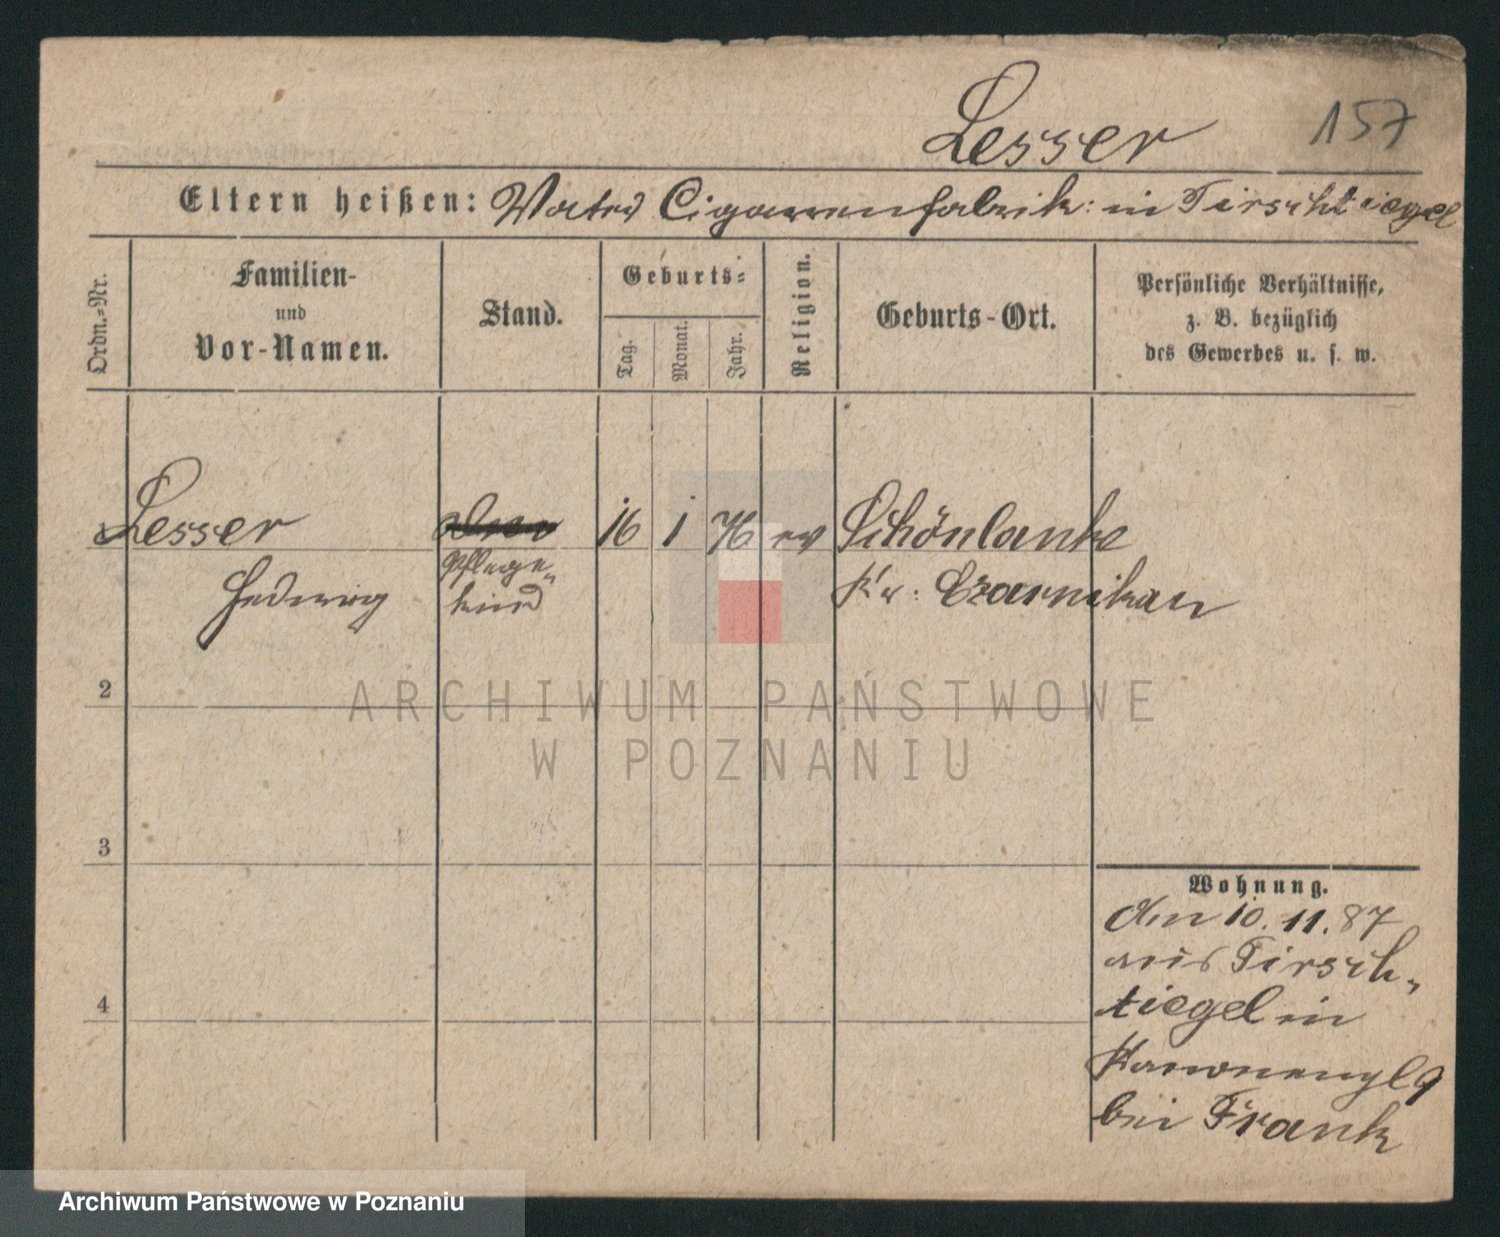 Lesser 157
Eltern heißen: Vater Cigarrenfabrik: in Tirschtiegel
Ordn.-Nr.
Familien-
und
Vor-Namen.
Stand.
Geburts-
Tag.
Monat.
Jahr.
Religion.
Geburts-Ort.
Persönliche Verhältnisse,
z. B. bezüglich
des Gewerbes u. s. w.
Lesser 16 1 76 ev Schönlanke
Pflege-
Hedwig kind Kr: Czarnikau
2
ARCHIWUM PAŃSTWOWE
W POZNANIU
3
Wohnung.
den 10. 11. 87
aus Tirsch-
4
tiegel in
Kanonenpl 9
bei Frank
Archiwum Państwowe w Poznaniu